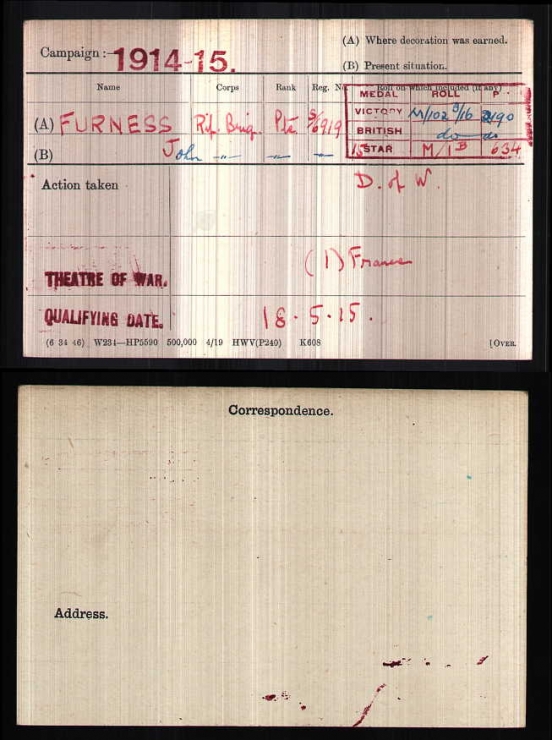 Campaign :- 1914-15.
(A) Where decoration was earned.
(B) Present situation.
Name Corps Rank Reg. No. Roll on which included (if any)
MEDAL ROLL P
(A) FURNESS Rif. Brig. Pte S/6919
VICTORY 2190
BRITISH do do
(B) John " " "
15 STAR M/1B 634
Action taken
D. of W.
THEATRE OF WAR.
(1) France
QUALIFYING DATE.
18.5.15.
(6 34 46) W234—HP5590 500,000 4/19 HWV(P240) K608 [OVER.
Correspondence.
Address.